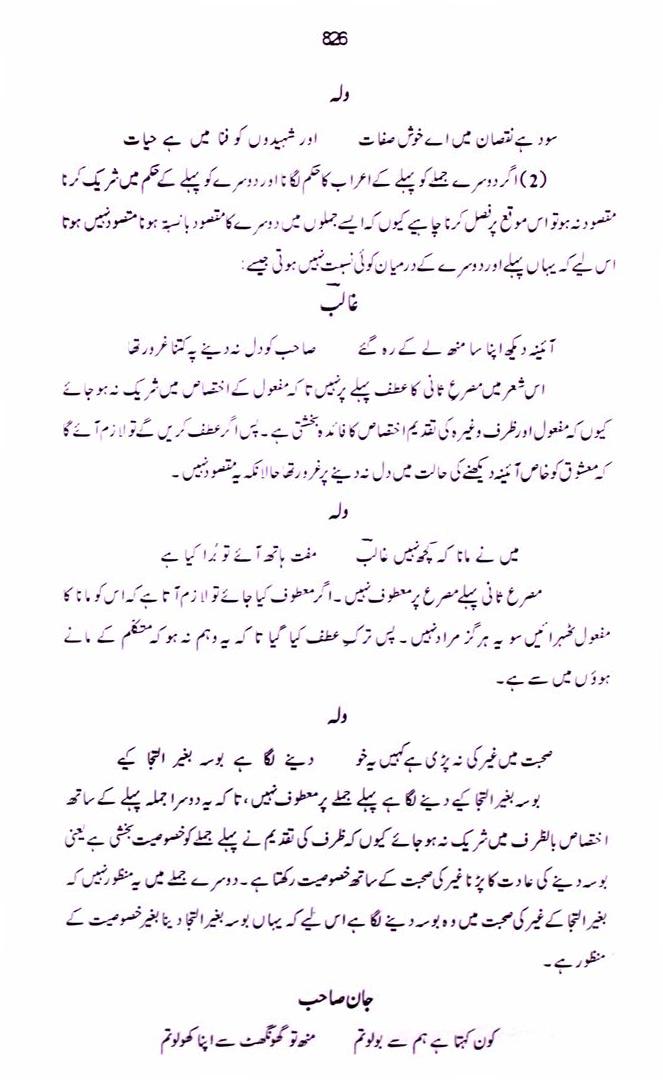 826
ولہ
سود ہے نقصان میں اے خوش صفات اور شہیدوں کو فنا میں ہے حیات
(2) اگر دوسرے جملے کو پہلے کے اعراب کا حکم لگانا اور دوسرے کو پہلے کے حکم میں شریک کرنا
مقصود نہ ہو تو اس موقع پر فصل کرنا چاہیے کیوں کہ ایسے جملوں میں دوسرے کا مقصود بانسبۃ ہونا مقصود نہیں ہوتا
اس لیے کہ یہاں پہلے اور دوسرے کے درمیان کوئی نسبت نہیں ہوتی جیسے:
غالب
آئینہ دیکھ اپنا سا منھ لے کے رہ گئے صاحب کو دل نہ دینے پہ کتنا غرور تھا
اس شعر میں مصرع ثانی کا عطف پہلے پر نہیں تا کہ مفعول کے اختصاص میں شریک نہ ہو جائے
کیوں کہ مفعول اور ظرف وغیرہ کی تقدیم اختصاص کا فائدہ بخشتی ہے۔ پس اگر عطف کریں گے تو لازم آئے گا
کہ معشوق کو خاص آئینہ دیکھنے کی حالت میں دل نہ دینے پر غرور تھا حالانکہ یہ مقصود نہیں۔
ولہ
میں نے مانا کہ کچھ نہیں غالب مفت ہاتھ آئے تو بُرا کیا ہے
مصرع ثانی پہلے مصرع پر معطوف نہیں۔ اگر معطوف کیا جائے تو لازم آتا ہے کہ اس کو مانا کا
مفعول ٹھہرائیں سو یہ ہرگز مراد نہیں۔ پس ترکِ عطف کیا گیا تا کہ یہ وہم نہ ہو کہ متکلم کے مانے
ہوؤں میں سے ہے۔
ولہ
صحبت میں غیر کی نہ پڑی ہے کہیں یہ خو دینے لگا ہے بوسہ بغیر التجا کیے
بوسہ بغیر التجا کیے دینے لگا ہے پہلے جملے پر معطوف نہیں، تا کہ یہ دوسرا جملہ پہلے کے ساتھ
اختصاص بالظرف میں شریک نہ ہو جائے کیوں کہ ظرف کی تقدیم نے پہلے جملے کو خصوصیت بخشی ہے یعنی
بوسہ دینے کی عادت کا پڑنا غیر کی صحبت کے ساتھ خصوصیت رکھتا ہے۔ دوسرے جملے میں یہ منظور نہیں کہ
بغیر التجا کے غیر کی صحبت میں وہ بوسہ دینے لگا ہے اس لیے کہ یہاں بوسہ بغیر التجا دینا بغیر خصوصیت کے
منظور ہے۔
جان صاحب
کون کہتا ہے ہم سے بولو تم منھ تو گھونگھٹ سے اپنا کھولو تم